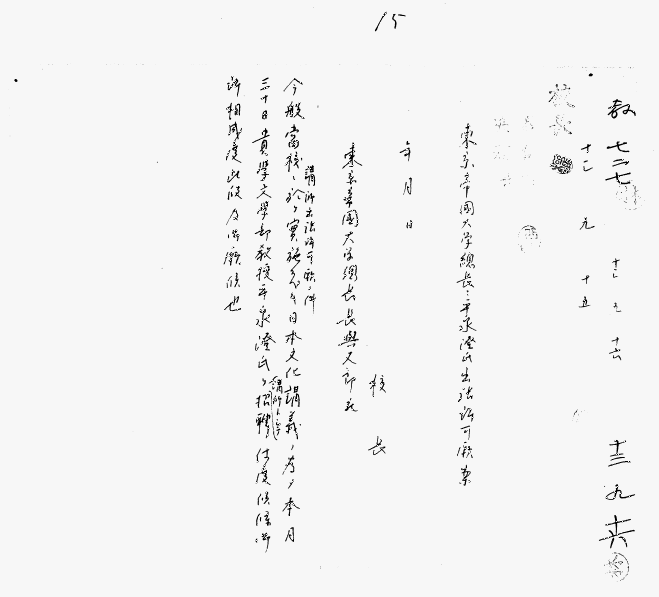 15
教七二七
十二 九 十六
十二、九、十六
十二 九 十五
校長
東京帝國大学總長ニ平泉澄氏出張許可願案
年 月 日
校 長
東京帝國大学總長長與又郎宛
講師出張許可願ノ件
今般當校ニ於テ實施スベキ日本文化講義ノ為メ本月
三十日貴學文學部教授平泉澄氏ヲ講師トシテ招聘仕度候條御
許相成度此段及御願候也